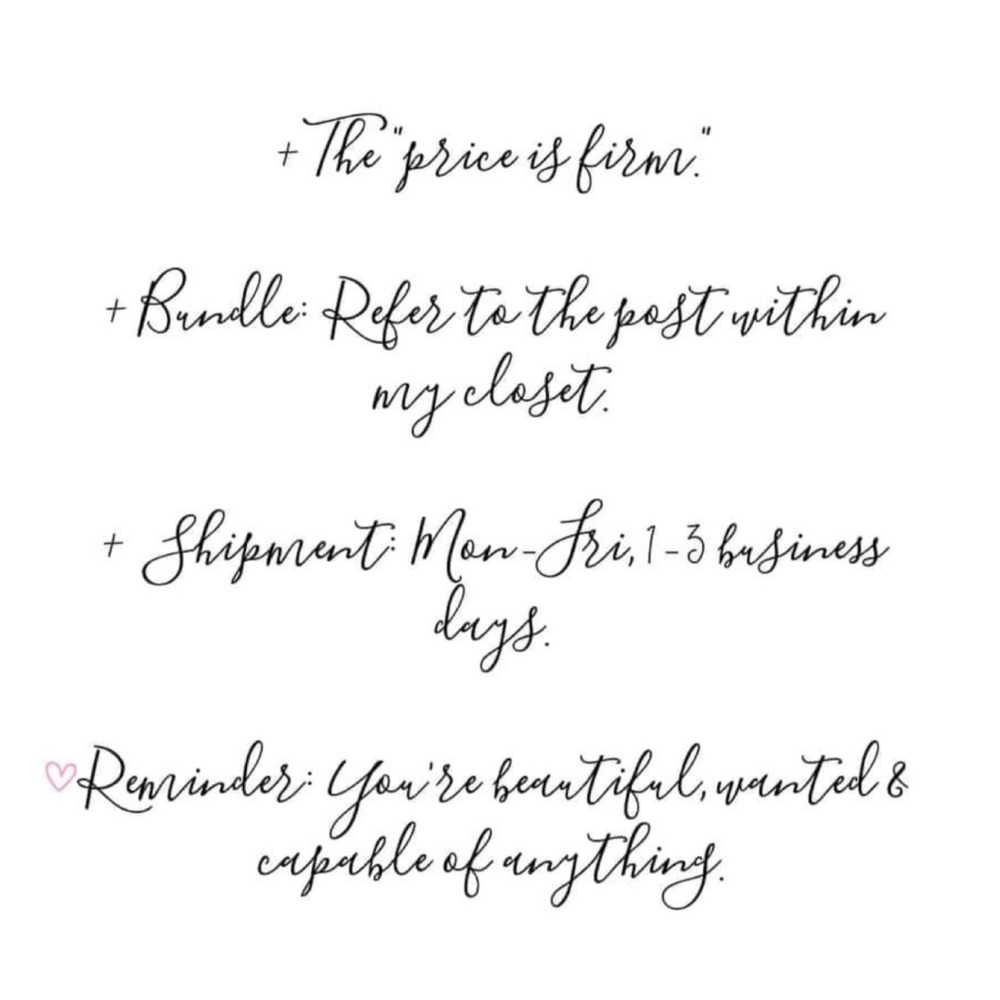 + The "price is firm."
+ Bundle: Refer to the post within
my closet.
+ Shipment: Mon-Fri, 1-3 business
days.
♡Reminder: You're beautiful, wanted &
capable of anything.